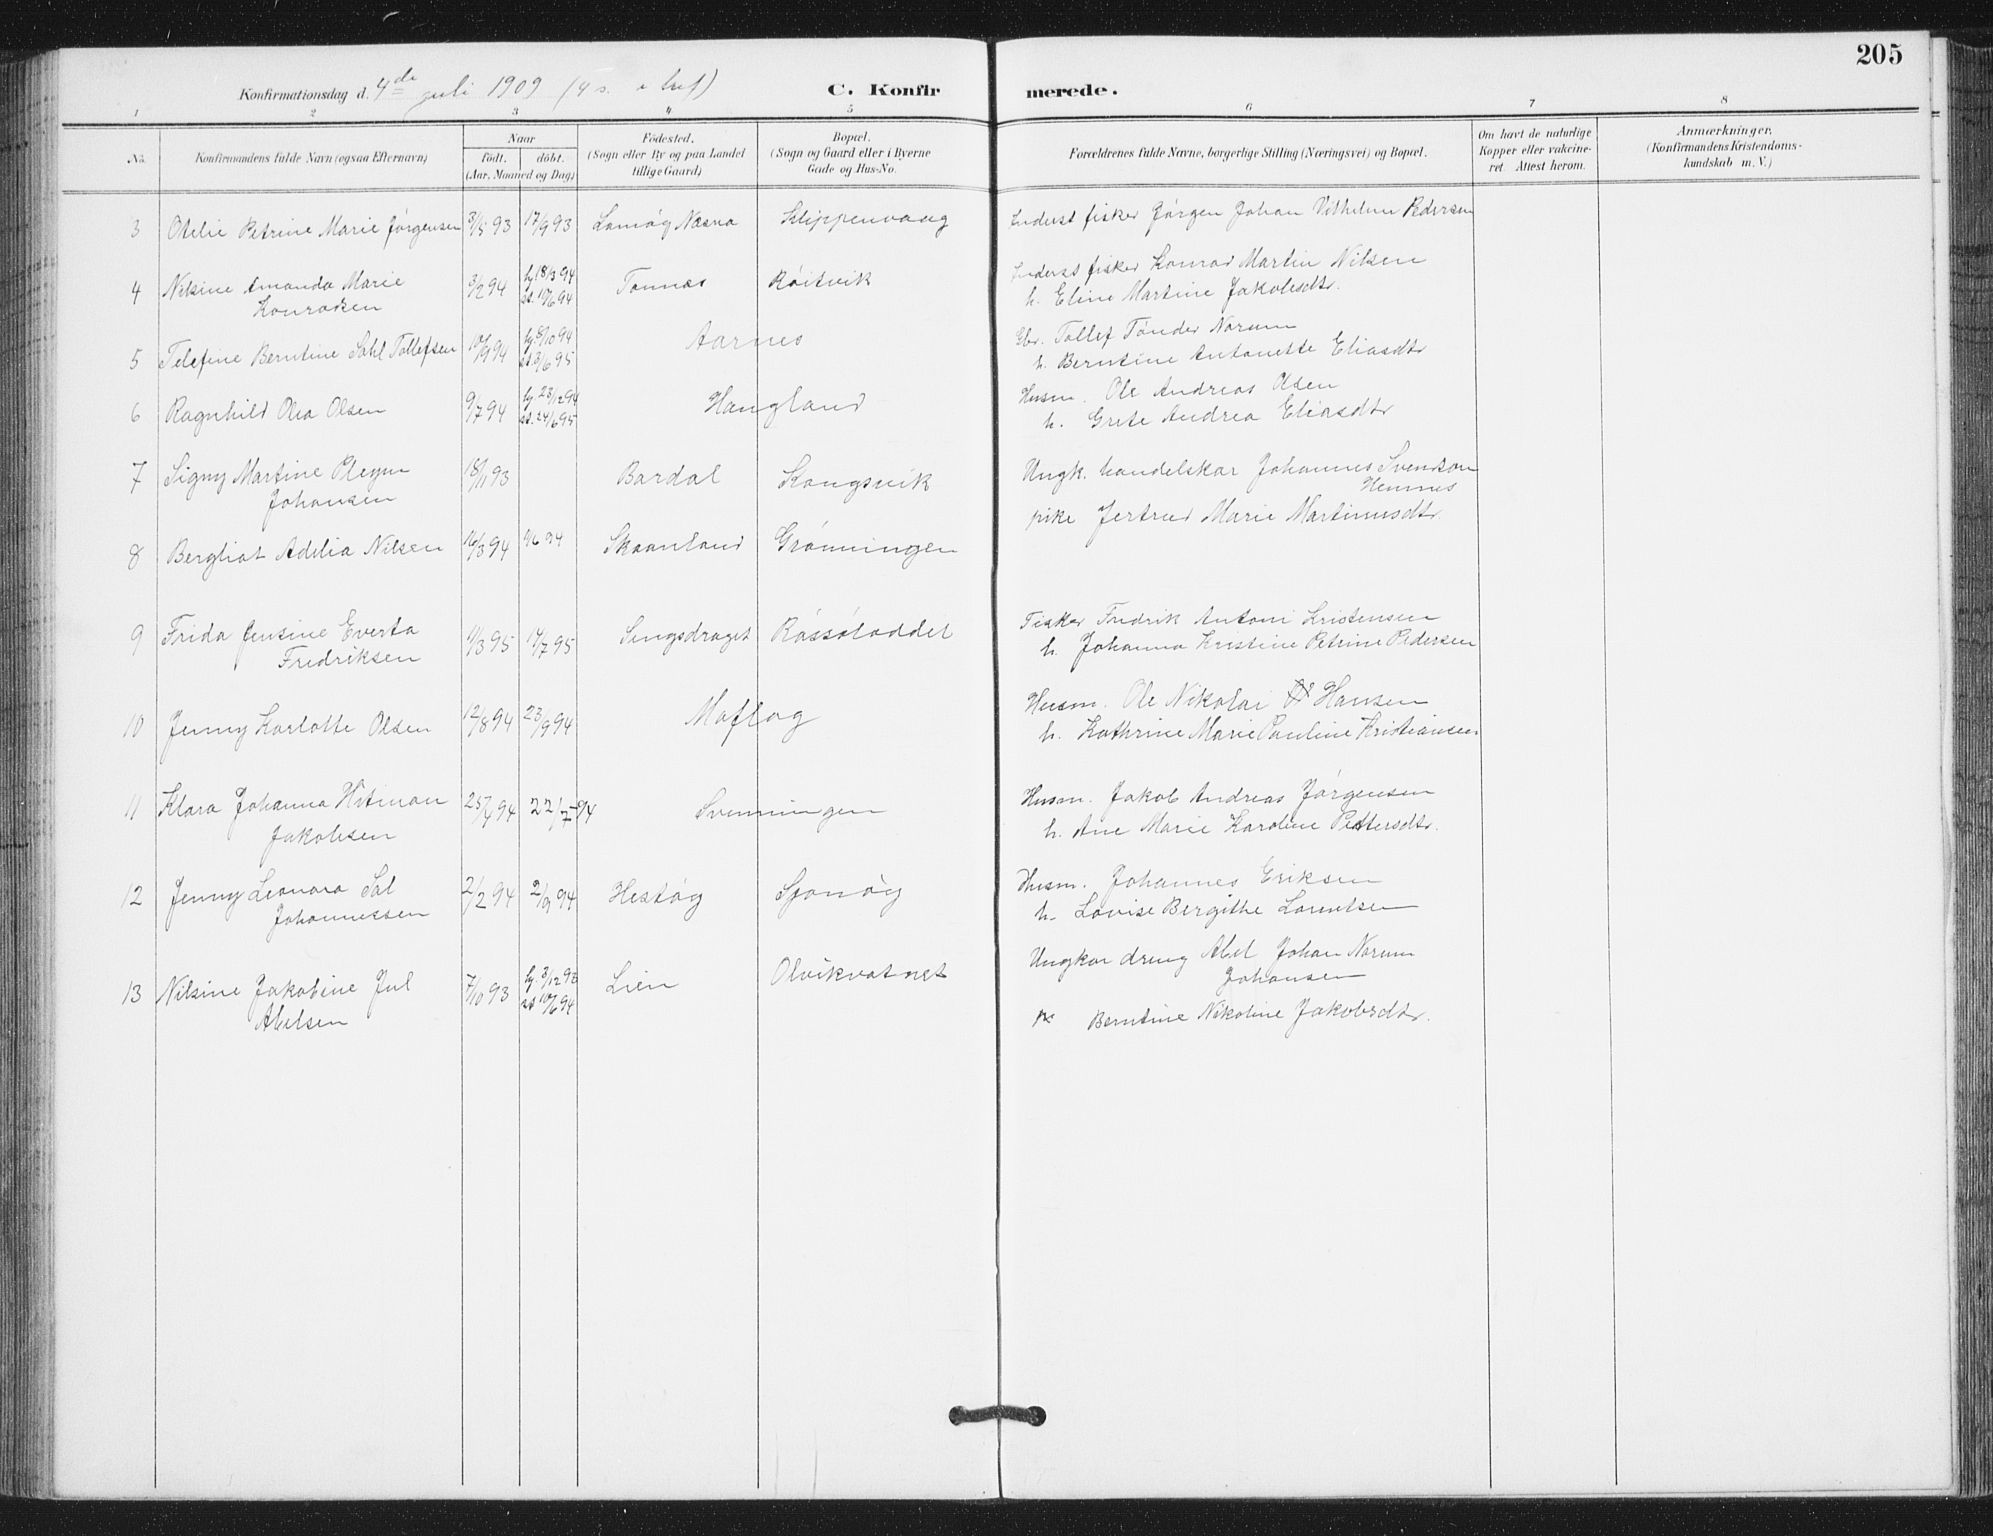 205
Konfirmationsdag d. 4de juli 1909 (4 s. e. tref)
C. Konfirmerede.
1 2 3 4 5 6 7 8
No.
Konfirmandens fulde Navn (ogsaa Efternavn)
Naar
født. døbt.
(Aar, Maaned og Dag)
Fødested.
(Sogn eller By og paa Landet
tillige Gaard)
Bopæl.
(Sogn og Gaard eller i Byerne
Gade og Hus-No.
Forældrenes fulde Navne, borgerlige Stilling (Næringsvei) og Bopæl.
Om havt de naturlige
Kopper eller vakcine-
ret. Attest herom.
Anmærkninger,
(Konfirmandens Kristendoms-
kundskab m. V.)
3 Otelie Petrine Marie Jørgensen 3/5 93 17/9 93 Lamøy Næsna Klippenvaag Inderst fisker Jørgen Johan Vilhelm Pedersen
4 Nilsine Amanda Marie 3/2 94 hj 18/3 94 Tonnes Røitvik Inderst fisker Konrad Martin Nilsen
Konradsen st. 10/6 94 h. Eline Martine Jakobsdtr.
5 Telefine Berntine Sahl Tollefsen 10/9 94 hj 8/10 94 Aarnes Gbr. Tollef Tønder Norum
st 3/6 95 h. Berntine Antonette Eliasdtr
6 Ragnhild Olea Olsen 9/7 94 hj. 23/12 94 Haugland Husm. Ole Andreas Olsen
st. 24/6 95 h. Grete Andrea Eliasdtr
7 Signy Martine Pleym 18/11 93 Bardal Kongsvik Ungk. handelskar Johannes Svendson
Johansen Hemnes
pike Jertrud Marie Martinusdtr
8 Bergliot Adelia Nilsen 16/3 94 94 Skaanland Grønningen
9 Frida Jensine Everta 1/3 95 17/7 95 Sengsdraget Røssøloddet Fisker Fredrik Antoni Kristensen
Fredriksen h. Johanna Kristine Petrine Pedersen
10 Jenny Karlotte Olsen 12/8 94 23/9 94 Moflag Husm. Ole Nikolai Hansen
h. Kathrine Marie Pauline Kristiansen
11 Klara Johanna Hitman 25/4 94 22/7 94 Svenningen Husm. Jakob Andreas Jørgensen
Jakobsen h. Ane Marie Karoline Pettersdtr.
12 Jenny Leonora Sol 2/2 94 2/9 94 Hestøy Sjonøy Husm. Johannes Eriksen
Johannessen h. Lovise Bergithe Lorentsen
13 Nilsine Jakobine Jul 7/10 93 hj. 3/12 93 Lien Olvikvatnet Ungkar dreng Abel Johan Norum
Abelsen st 10/6 94 Johansen
Berntine Nikoline Jakobsdtr.